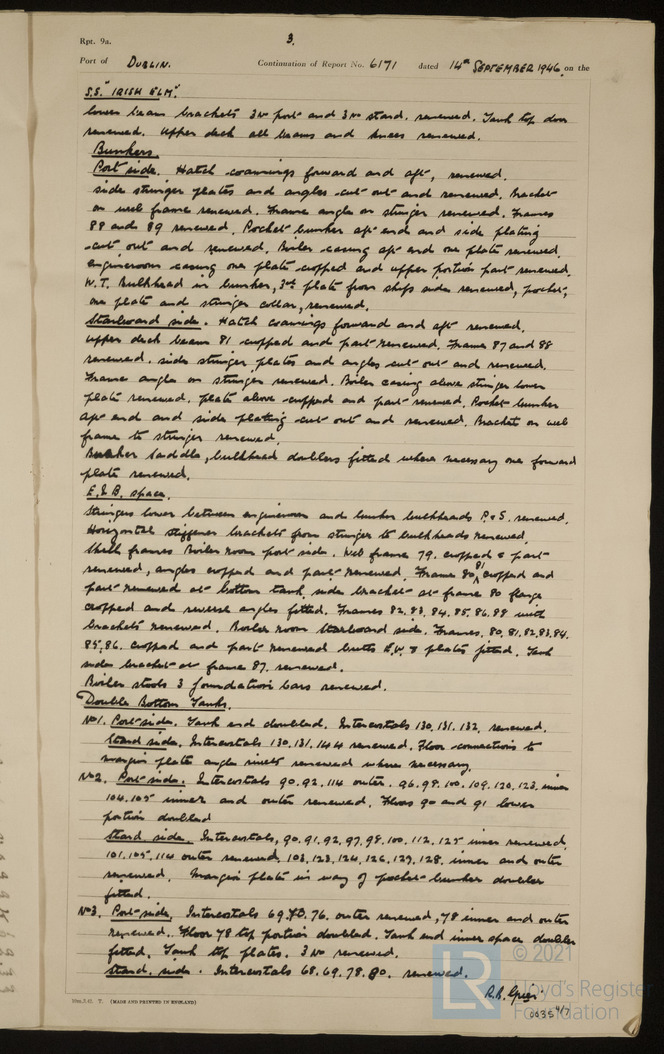 Rpt. 9a.
3.
Port of DUBLIN. Continuation of Report No. 6171 dated 14th SEPTEMBER 1946. on the
S.S. "IRISH ELM".
lower beam brackets 3 No port and 3 No starbd. renewed. Tank top door
renewed. Upper deck all beams and knees renewed.
Bunkers.
Port side. Hatch coamings forward and aft, renewed.
side stringer plates and angles cut out and renewed. Bracket
on web frame renewed. Frame angles on stringer renewed. Frames
88 and 89 renewed. Pocket bunker aft end and side plating
cut out and renewed. Boiler casing aft end one plate renewed.
engineroom casing one plate cropped and upper portion part renewed.
W.T. Bulkhead in bunker, 3rd plate from ships side renewed, pocket,
one plate and stringer collar, renewed.
Starboard side. Hatch coamings forward and aft renewed.
Upper deck beam 81 cropped and part renewed. Frames 87 and 88
renewed. side stringer plates and angles cut out and renewed.
Frame angles on stringer renewed. Boiler casing above stringer lower
plate renewed. plate above cropped and part renewed. Pocket bunker
aft end and side plating cut out and renewed. Bracket on web
frame to stringer renewed.
Bunker saddle, bulkhead doublers fitted where necessary one forward
plate renewed.
E. & B. space.
Stringers lower between engineroom and bunker bulkheads P. & S. renewed.
Horizontal stiffener brackets from stringer to bulkheads renewed.
Shell frames Boiler room port side. Web frame 79. cropped & part
renewed, angles cropped and part renewed. Frame 80, 81 cropped and
part renewed at bottom tank side bracket at frame 80 flange
cropped and reverse angles fitted. Frames 82.83.84.85.86.88 with
brackets renewed. Boiler room Starboard side. Frames, 80.81.82.83.84.
85.86. cropped and part renewed butts E.W. & plates fitted. Tank
side bracket at frame 87. renewed.
Boiler stools 3 foundation bars renewed.
Double Bottom Tanks.
No1. Port side. Tank end doubled. Intercostals 130.131.132. renewed.
Starbd side. Intercostals 130.131.144 renewed. Floor connections to
margin plate angle rivets renewed where necessary.
No2. Port side. Intercostals 90.92.114 outer. 96.98.100.109.120.123. inner
104.105 inner and outer renewed. Floors 90 and 91 lower
portion doubled
Starbd side. Intercostals, 90.91.92.97.98.100.112.125 inner renewed.
101.105.114 outer renewed. 103.123.124.126.127.128. inner and outer
renewed. Margin plate in way of pocket bunker doubler
fitted.
No3. Port side. Intercostals 69.70.76. outer renewed, 78 inner and outer
renewed. Floor 78 top portion doubled. Tank end inner space doubler
fitted. Tank top plates. 3 No renewed.
Starbd. side. Intercostals 68.69.78.80. renewed.
© 2021
LR
Lloyd's Register
Foundation
0035 4/7
(MADE AND PRINTED IN ENGLAND)